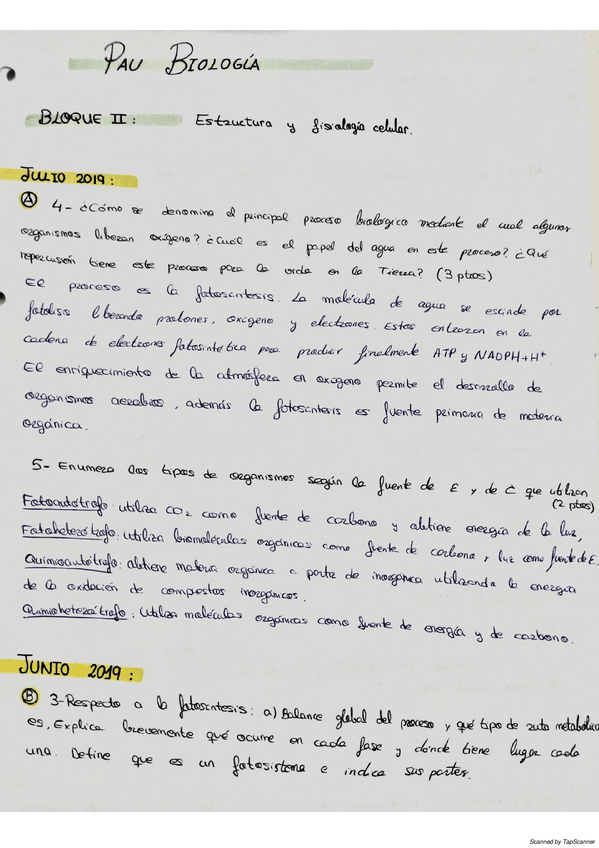 PAU BIOLOGÍA
BLOQUE II: Estructura y fisiología celular.
JULIO 2019:
Ⓐ 4- ¿Cómo se denomina el principal proceso biológico mediante el cual algunos
organismos liberan oxígeno? ¿Cuál es el papel del agua en este proceso? ¿Qué
repercusión tiene este proceso para la vida en la Tierra? (3 ptos)
El proceso es la fotosíntesis. La molécula de agua se escinde por
fotólisis liberando protones, oxígeno y electrones. Estos entrarán en la
cadena de electrones fotosintética para producir finalmente ATP y NADPH+H⁺
El enriquecimiento de la atmósfera en oxígeno permite el desarrollo de
organismos aerobios, además la fotosíntesis es fuente primaria de materia
orgánica.
5- Enumera los tipos de organismos según la fuente de E y de C que utilizan
(2 ptos)
Fotoautótrofo: utiliza CO₂ como fuente de carbono y obtiene energía de la luz,
Fotoheterótrofo: utiliza biomoléculas orgánicas como fuente de carbono y luz como fuente de E.
Quimioautótrofo: obtiene materia orgánica a partir de inorgánica utilizando la energía
de la oxidación de compuestos inorgánicos.
Quimioheterótrofo: Utiliza moléculas orgánicas como fuente de energía y de carbono.
JUNIO 2019:
Ⓑ 3-Respecto a la fotosíntesis: a) Balance global del proceso y qué tipo de ruta metabólica
es, Explica brevemente qué ocurre en cada fase y dónde tiene lugar cada
una. Define que es un fotosistema e indica sus partes.
Scanned by TapScanner